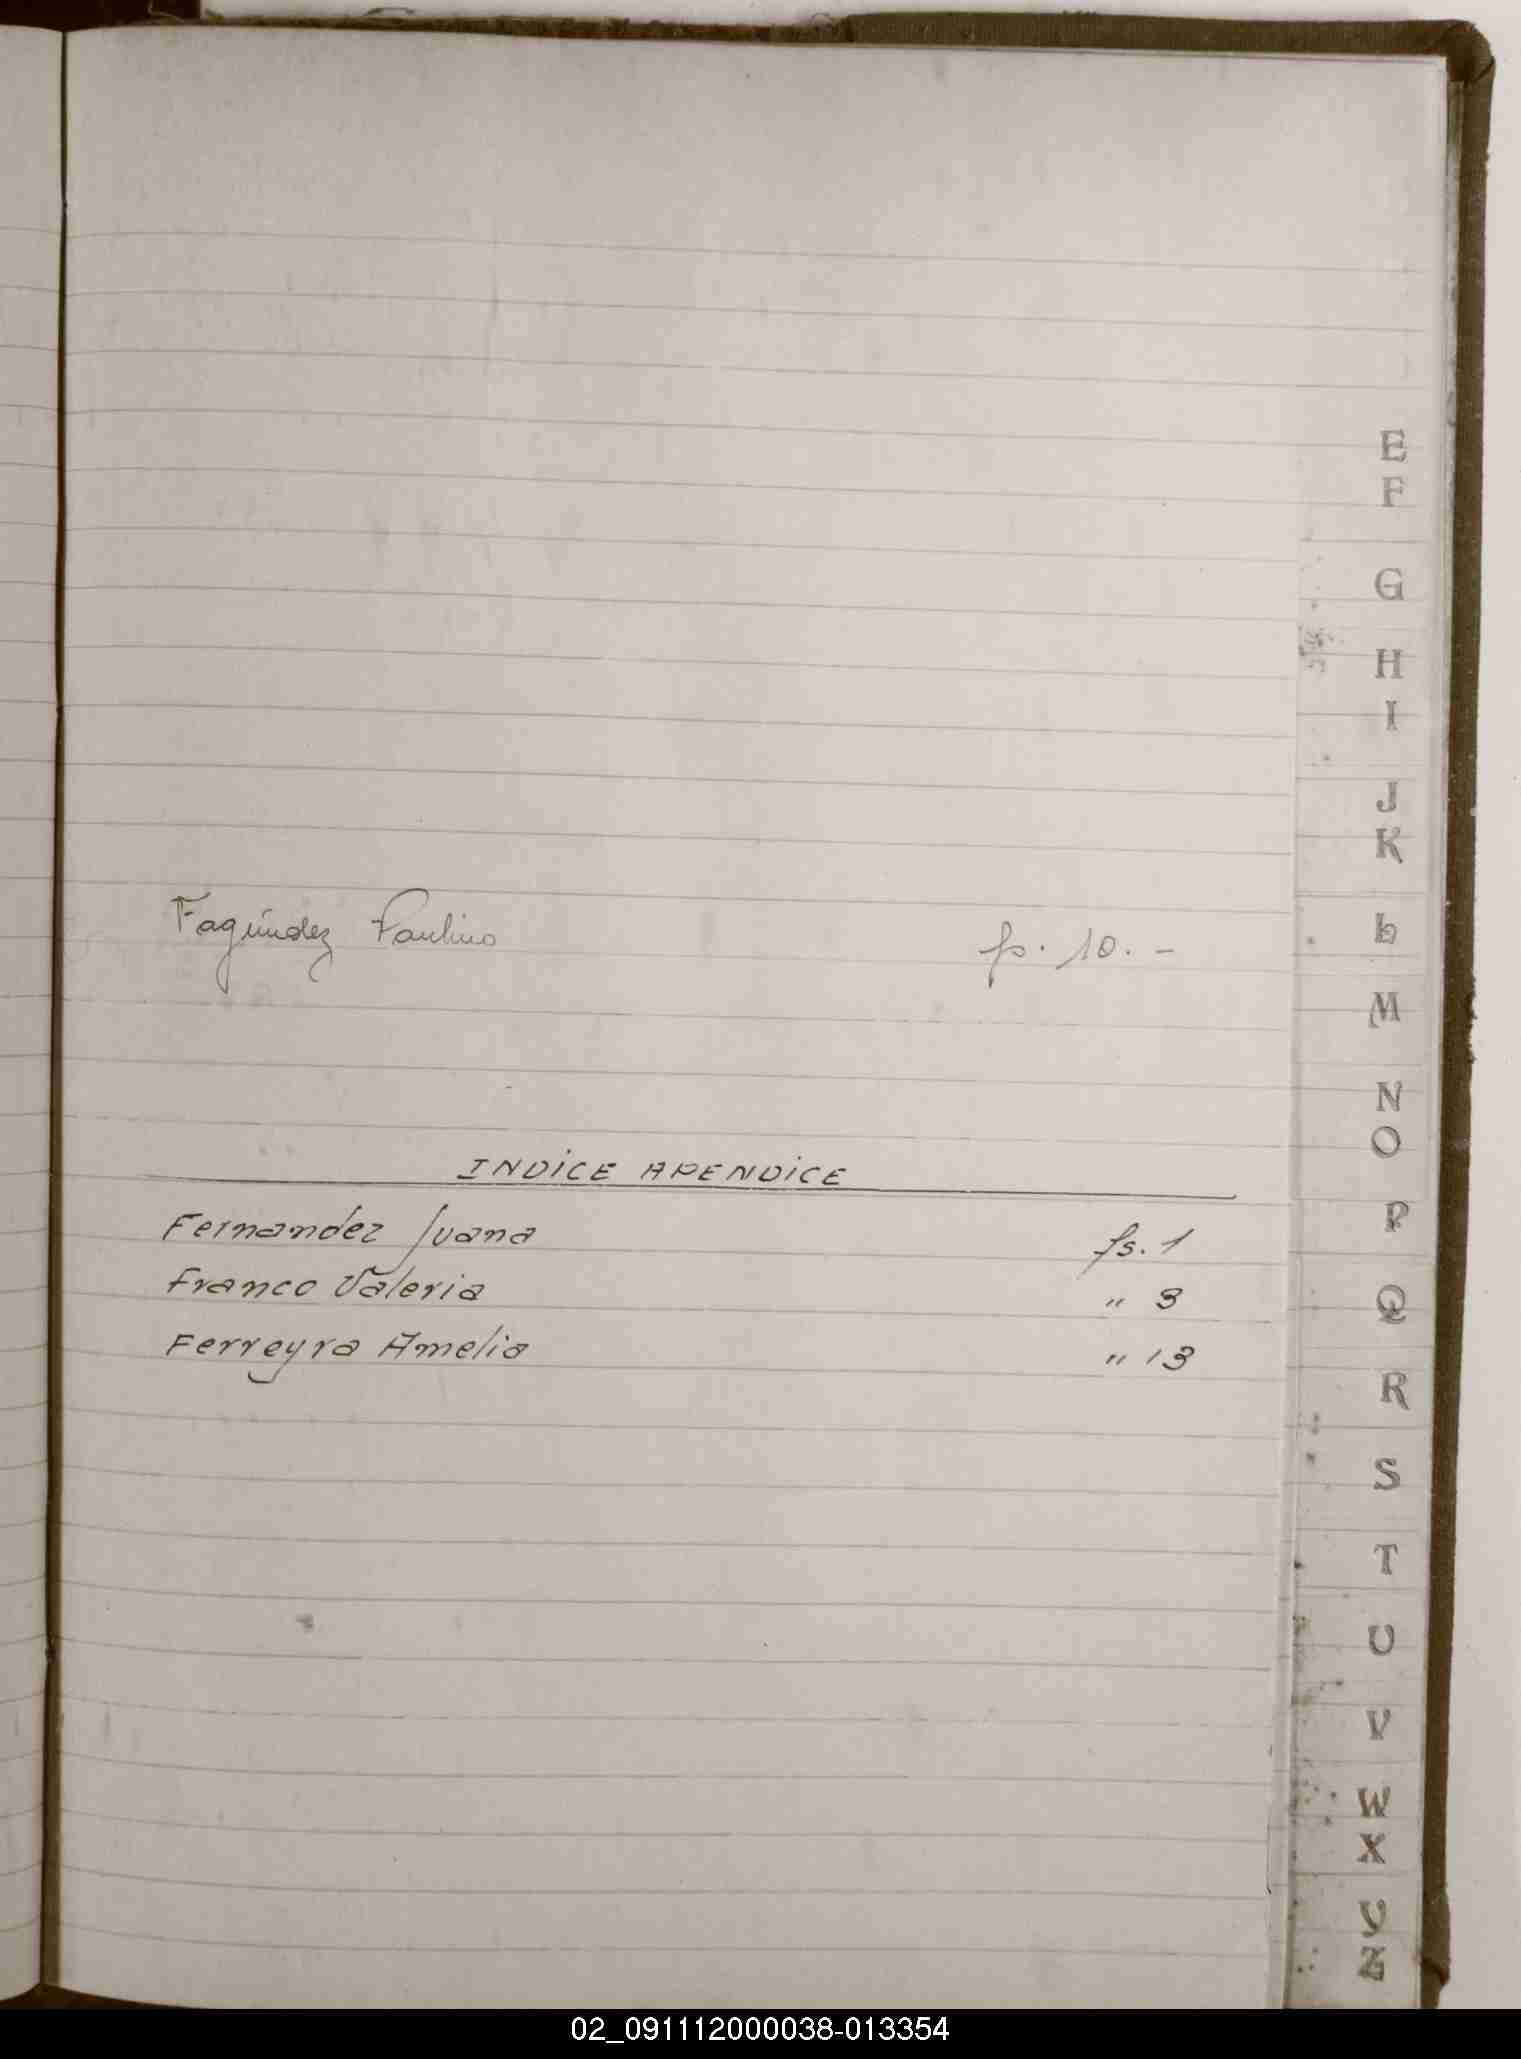 Fagúndez Paulino fs. 10. -
INDICE APENDICE
Fernandez Juana fs. 1
Franco Valeria " 3
Ferreyra Amelia " 13
E
F
G
H
I
J
K
L
M
N
O
P
Q
R
S
T
U
V
W
X
Y
Z
02_091112000038-013354